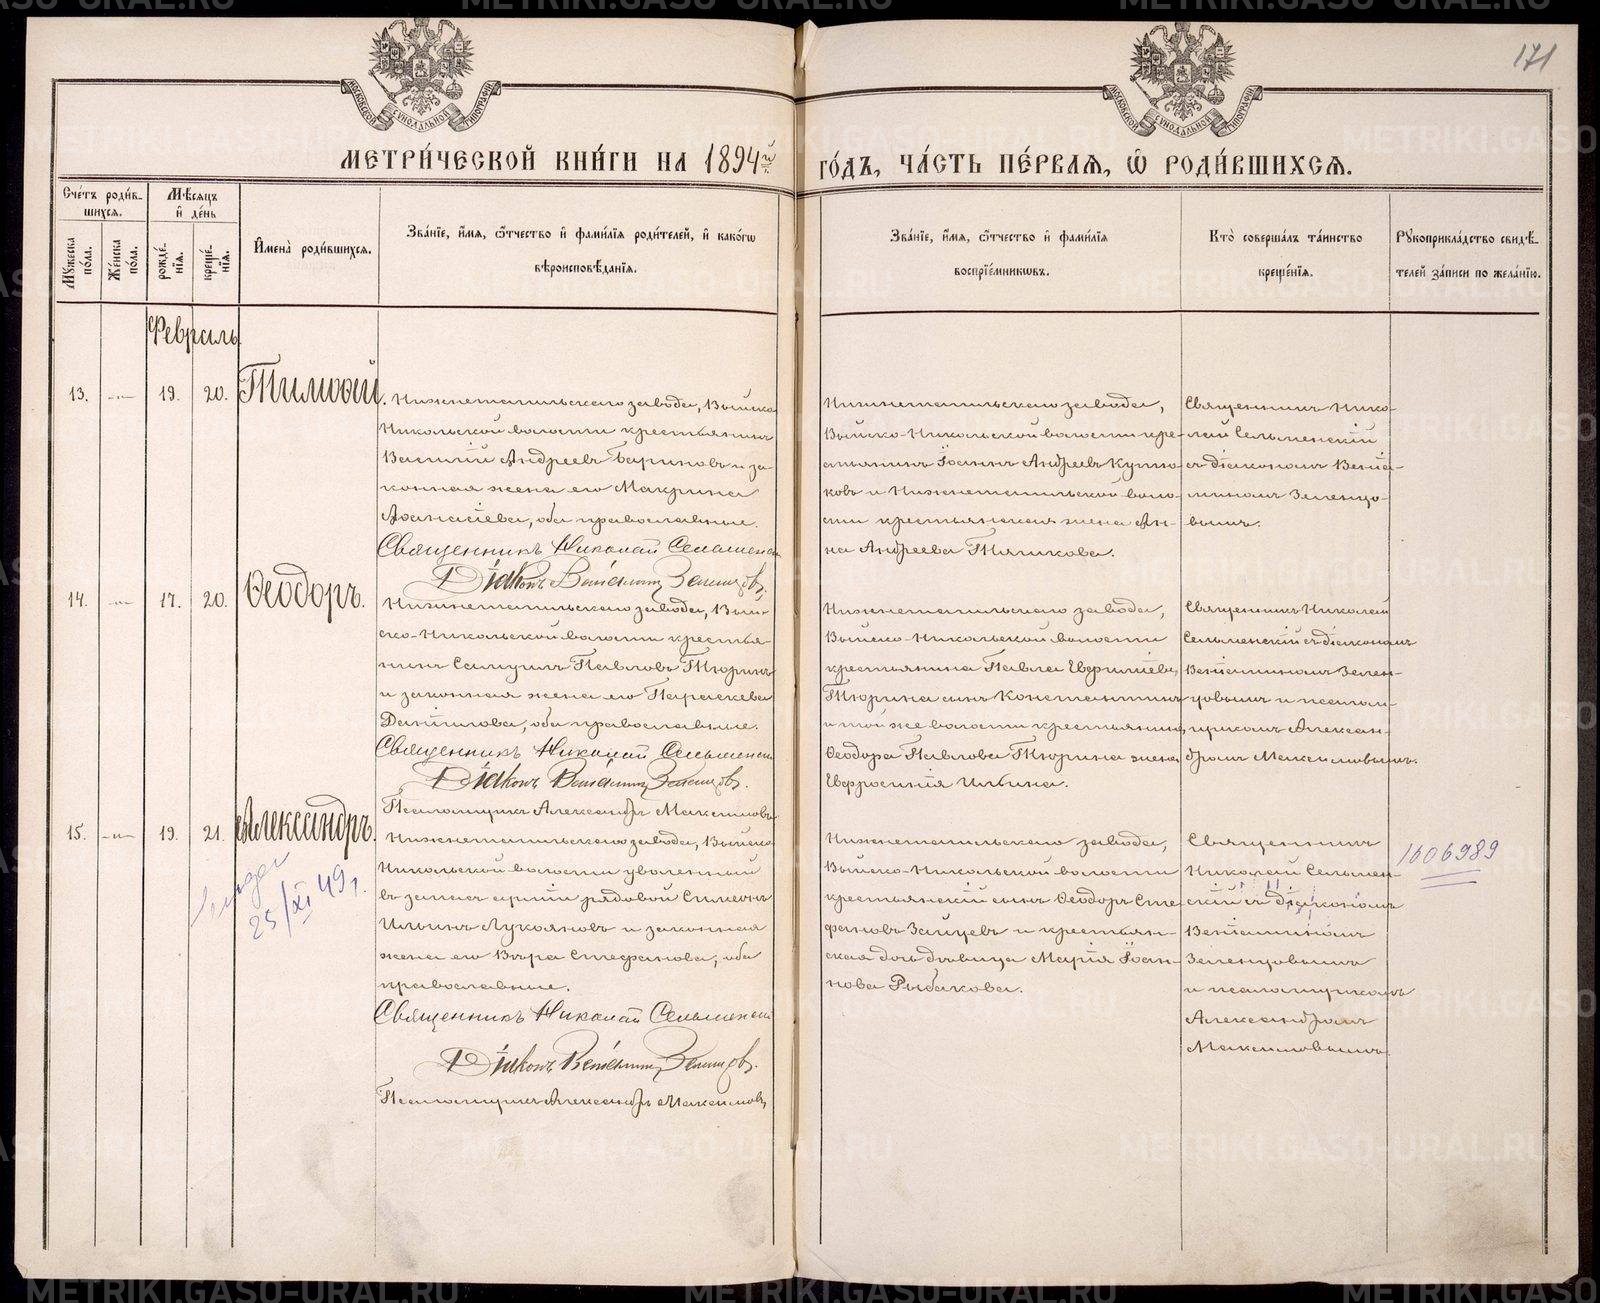 171
МОСКОВСКОЙ СѴНОДАЛЬНОЙ ТИПОГРАФІИ
МОСКОВСКОЙ СѴНОДАЛЬНОЙ ТИПОГРАФІИ
МЕТРИ́ЧЕСКОЙ КНИ́ГИ НА 1894й ГО́ДЪ, ЧА́СТЬ ПЕ́РВАѦ, Ѡ҆ РОДИ́ВШИХСѦ.
Сче́тъ роди́в-
шихсѧ.
Мѣ́сѧцъ
и҆ де́нь
Мꙋ́жеска
по́ла.
Же́нска
по́ла.
рожде́-
нїѧ.
креще́-
нїѧ.
И҆мена̀ роди́вшихсѧ.
Зва́нїе, и҆́мѧ, ѻ҆́тчество и҆ фами́лїѧ роди́телей, и҆ како́гѡ
вѣроисповѣ́данїѧ.
Зва́нїе, и҆́мѧ, ѻ҆́тчество и҆ фами́лїѧ
воспрїе́мникѡвъ.
Кто̀ соверша́лъ та́инство
креще́нїѧ.
Рꙋкоприкла́дство свидѣ́-
телей за́писи по жела́нїю.
Февраль
13. -"- 19. 20. Тимоѳей.
Нижнетагильскаго завода, Выйско-
Никольской волости крестьянинъ
Василій Андреевъ Бариновъ и за-
конная жена его Макрина
Аѳанасіева, оба православные.
Священникъ Николай Сельменскій
Діаконъ Веніаминъ Зеленцовъ.
Нижнетагильскаго завода,
Выйско-Никольской волости кре-
стьянинъ Іоаннъ Андреевъ
и Нижнетагильской воло-
сти крестьянская жена Ан-
на Андреева
Священникъ Нико-
лай Сельменскій
съ діакономъ Веніа-
миномъ Зеленцо-
вымъ.
14. -"- 17. 20. Ѳеодоръ.
Нижнетагильскаго завода, Вый-
ско-Никольской волости крестья-
нинъ Самуилъ Павловъ Тюринъ
и законная жена его Параскева
Даніилова, оба православные.
Священникъ Николай Сельменскій
Діаконъ Веніаминъ Зеленцовъ.
Псаломщикъ Александръ Максимовъ
Нижнетагильскаго завода,
Выйско-Никольской волости
крестьянина Павла
Тюрина сынъ Константинъ
и той же волости крестьянина
Ѳеодора Павлова Тюрина жена
Евфросинія Ильина.
Священникъ Николай
Сельменскій съ діакономъ
Веніаминомъ Зелен-
цовымъ и псалом-
щикомъ Алексан-
дромъ Максимовымъ.
15. -"- 19. 21. Александръ.
25/XI 49 г.
Нижнетагильскаго завода, Выйско-
Никольской волости уволенный
въ запасъ арміи рядовой Симеонъ
Ильинъ Лукояновъ и законная
жена его Вѣра Стефанова, оба
православные.
Священникъ Николай Сельменскій
Діаконъ Веніаминъ Зеленцовъ.
Псаломщикъ Александръ Максимовъ
Нижнетагильскаго завода,
Выйско-Никольской волости
крестьянскій сынъ Ѳеодоръ Сте-
фановъ Зайцевъ и крестьян-
ская дочь дѣвица Марія Іоан-
нова Рыбакова.
Священникъ
Николай Сельмен-
скій съ діакономъ
Веніаминомъ
Зеленцовымъ
и псаломщикомъ
Александромъ
Максимовымъ.
1606989
METRIKI.GASO-URAL.RU